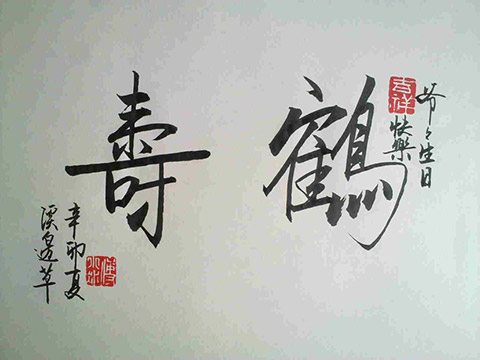 爷々生日
快樂
吉祥
鶴壽
辛卯夏
溪邊草